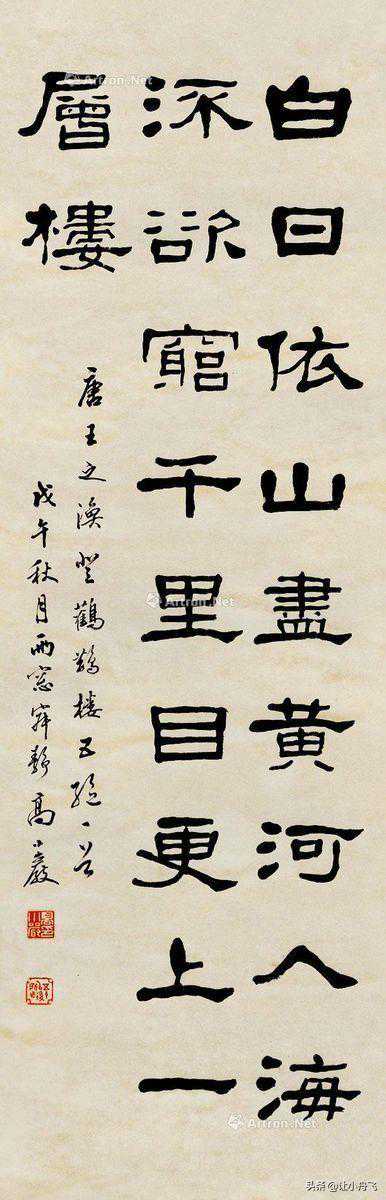 白日依山盡黃河入海
流欲窮千里目更上一
層樓
唐王之渙登鸛鵲樓五絕一首
戊午秋月雨窓寂靜高小巖
Artron.Net
Artron.Net
Artron.Net
头条@让小舟飞